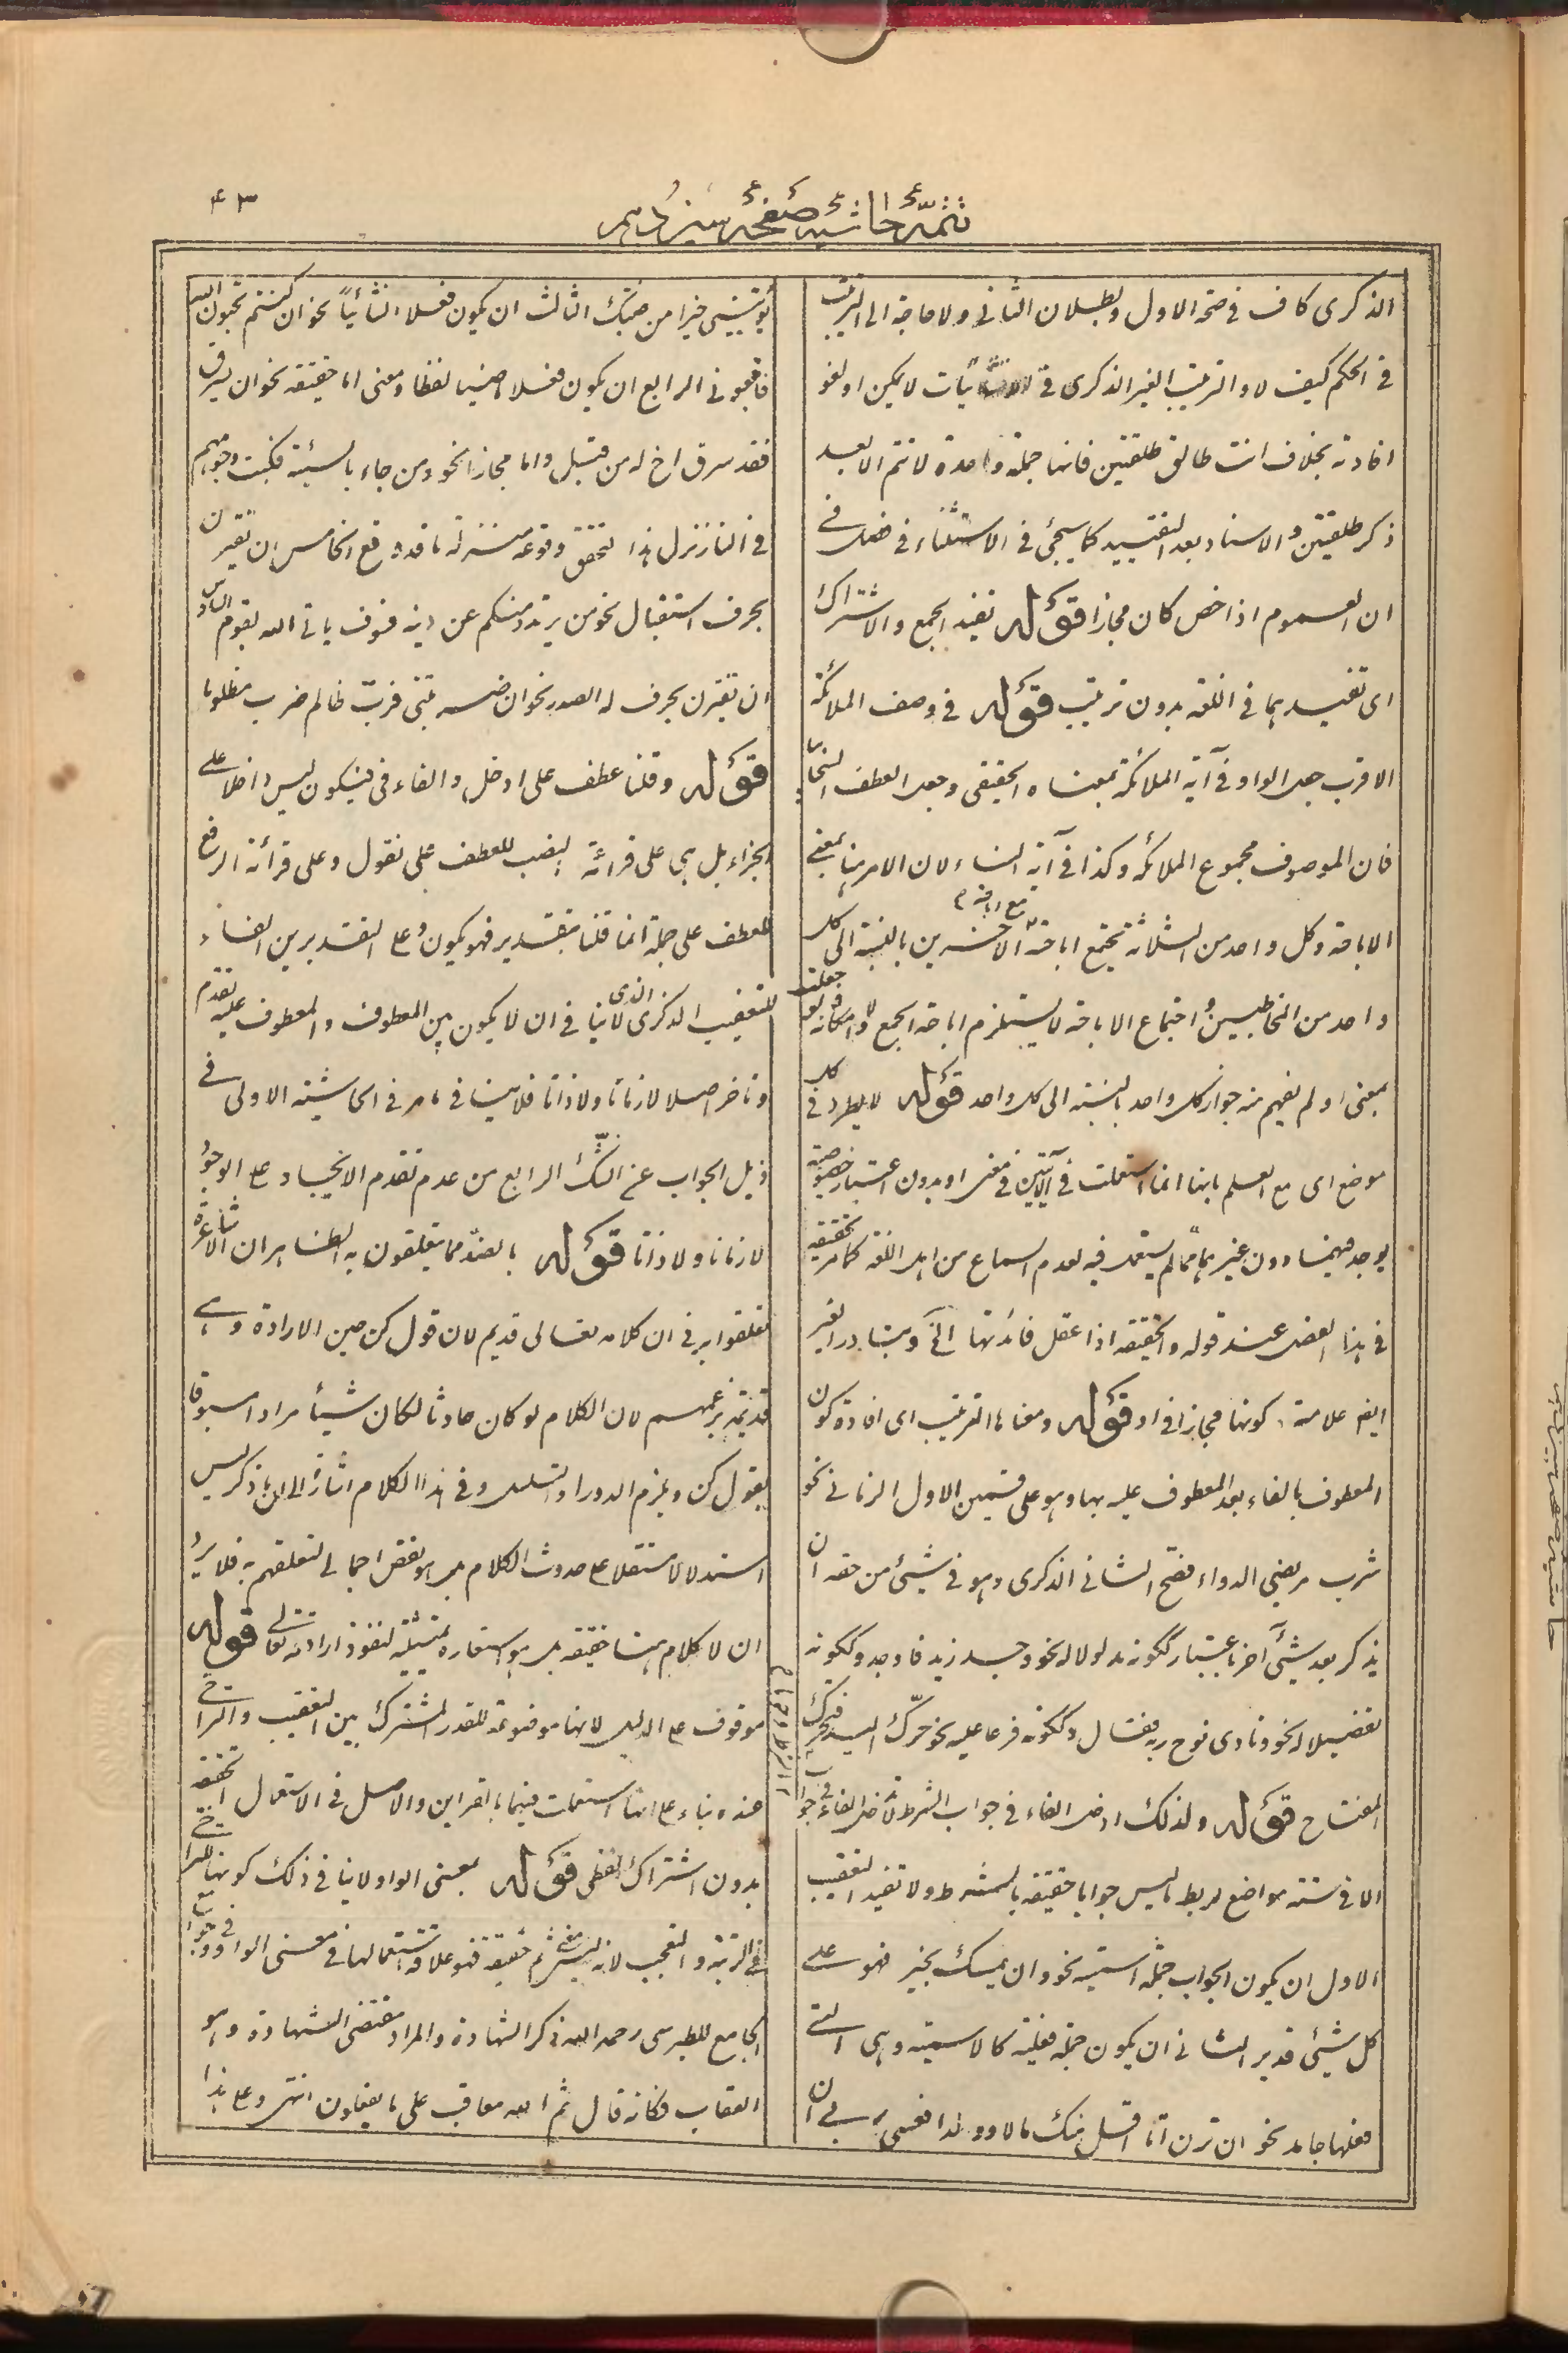 ۴۳
تتمّهٔ حاشیهٔ صفحهٔ
الذكرى كاف فى صحة الاول وبطلان الثانى ولا حاجة الى الترتيب
فى الحكم كيف لا والترتيب الغير الذكرى فى الانشائيات لا يمكن اولغو
افادته بخلاف انت طالق طلقتين فانها جملة واحدة لا تتم الا بعد
ذكر طلقتين والاسناد بعد التقييد كما سيجئ فى الاستثناء فى فصل فى
ان العموم اذا خص كان مجازا قوله تفيد الجمع والاشتراك
اى تفيدهما فى اللغة بدون ترتيب قوله فى وصف الملائكة
الاقرب جعل الواو فى آية الملائكة بمعناه الحقيقى وجعل العطف
فان الموصوف مجموع الملائكة وكذا فى آية النساء لان الامر هنا بمعنى
الاباحة وكل واحد من الثلاثة تجتمع اباحته مع اباحة الآخرين بالنسبة الى كل
واحد من المخاطبين واجتماع الاباحة لا يستلزم اباحة الجمع ولا امكانه ولو جعلت
بمعنى او لم يفهم منه جواز كل واحد بالنسبة الى كل واحد قوله لا يطرد فى كل
موضع اى مع العلم بانها انما استعملت فى الآيتين فى معنى او بدون اعتبار خصوصية
يوجد فيهما دون غيرهما مما لم يستعمل فيه لعدم السماع من اهل اللغة كما مر تحقيقه
فى هذا الفصل عند قوله والحقيقة اذا عقل فائدتها الخ وتبادر الغير
ايضا علامة كونها مجازا فى او قوله ومعناها الترتيب اى افادة كون
المعطوف بالفاء بعد المعطوف عليه بها وهو على قسمين الاول الزمانى نحو
شرب مريضى الدواء فصح الثانى الذكرى وهو فى شيئ من حقه ان
يذكر بعد شيئ آخر باعتبار ككونه مدلولا له نحو وجد زيد فاوجد وككونه
تفصيلا له نحو ونادى نوح ربه فقال وككونه فرعا عليه نحو حرّك اليد فتحرك
المفتاح قوله ولذلك ادخل الفاء فى جواب الشرط
الا فى ستة مواضع لربط ما ليس جوابا حقيقة بالشرط ولا تفيد التعقيب
الاول ان يكون الجواب جملة اسمية نحو وان يمسسك بخير فهو على
كل شيئ قدير الثانى ان يكون جملة فعلية كالاسمية وهى التى
فعلها جامد نحو ان ترن انا اقل منك مالا وولدا فعسى ربى ان
يؤتينى خيرا من جنتك الثالث ان يكون فعلا انشائيا نحو ان كنتم تحبون الله
فاتبعونى الرابع ان يكون فعلا ماضيا لفظا ومعنى اما حقيقة نحو ان يسرق
فقد سرق اخ له من قبل واما مجازا نحو ومن جاء بالسيئة فكبت وجوههم
فى النار نزل هذا لتحقق وقوعه منزلة ما قد وقع الخامس ان تقترن
بحرف استقبال نحو من يرتد منكم عن دينه فسوف ياتى الله بقوم السادس
ان تقترن بحرف له الصدر نحو ان
قوله وقلنا عطف على ادخل والفاء فى فيكون ليس داخلا على
الجزاء بل هى على قرائة النصب للعطف على نقول وعلى قرائة الرفع
للعطف على جملة انما قلنا بتقدير فهو يكون وعلى التقديرين الفاء
للتعقيب الذكرى الذى لا ينافى ان لا يكون بين المعطوف والمعطوف عليه تقدم
وتاخر اصلا لا زمانا ولا ذاتا فلا ينافى ما مر فى الحاشية الاولى فى
ذيل الجواب عن الشك الرابع من عدم تقدم الايجاد على الوجود
لا زمانا ولا ذاتا قوله بالضد مما يتعلقون به الظاهر ان الاشاعرة
تعلقوا به فى ان كلامه تعالى قديم لان قول كن حين الارادة وهى
قديمة بزعمهم لان الكلام لو كان حادثا لكان شيئا مرادا مسبوقا
بقول كن ويلزم الدور او التسلسل وفى هذا الكلام اشارة الى ان ما ذكر ليس
استدلالا مستقلا على حدوث الكلام بل هو نقض اجمالى لتعلقهم به فلا يرد
ان لا كلام هنا حقيقة بل هو استعارة تمثيلية لنفوذ ارادته تعالى قوله
موقوف على الدليل لانها موضوعة للقدر المشترك بين التعقيب والتراخى
عنده بناء على انها استعملت فيهما بالقراين والاصل فى الاستعمال الحقيقة
بدون اشتراك لفظى قوله بمعنى الواو ولا ينافى ذلك كونها للتراخى
فى الرتبة والتعجب لانه ليس معنى ثم حقيقة فهو علاقة استعمالها فى معنى الواو
الجامع للطبرسى رحمه الله ذكر الشهادة والمراد مقتضى الشهادة وهو
العقاب فكانه قال ثم الله معاقب على ما يفعلون انتهى وعلى هذا